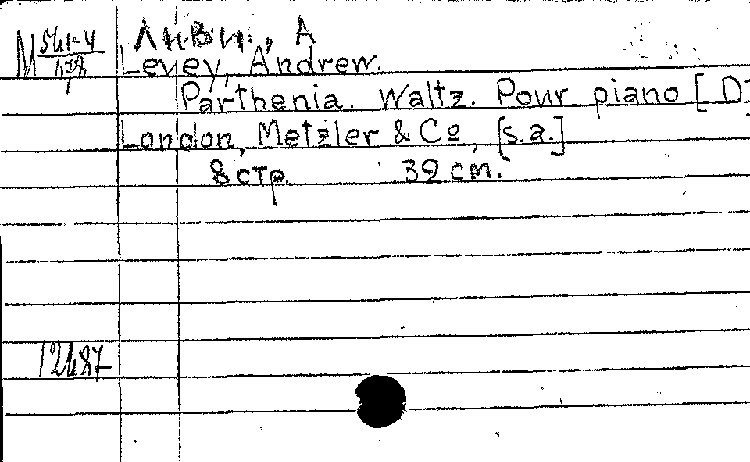 М 541-4 Ливи, А
178 Levey, Andrew.
Parthenia. Waltz. Pour piano [D]
London, Metzler & Co, [s.a.]
8 стр. 39 cm.
12487